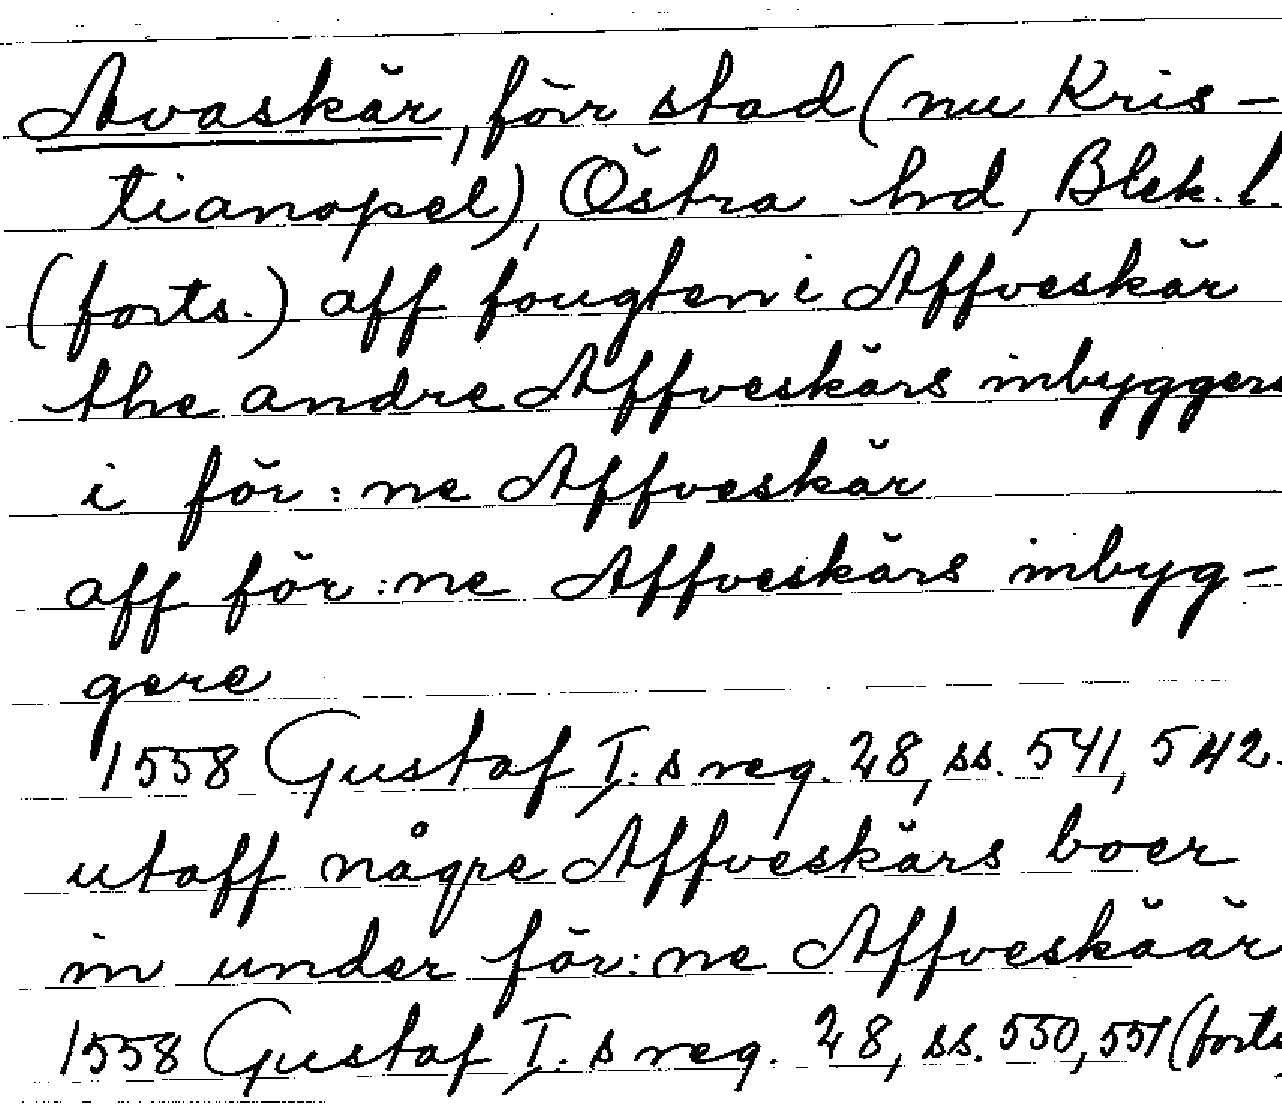 Avaskär, förr stad (nu Kris-
tianopel), Östra hrd, Blek. l.
(forts.) aff fougten i Affveskär
the andre Affveskärs inbyggere
i för:ne Affveskär
aff för:ne Affveskärs inbyg-
gere
1558 Gustaf I:s reg. 28, ss. 541, 542.
utaff någre Affveskärs boer
in under för:ne Affveskäär
1558 Gustaf I:s reg. 28, ss. 550, 551 (forts